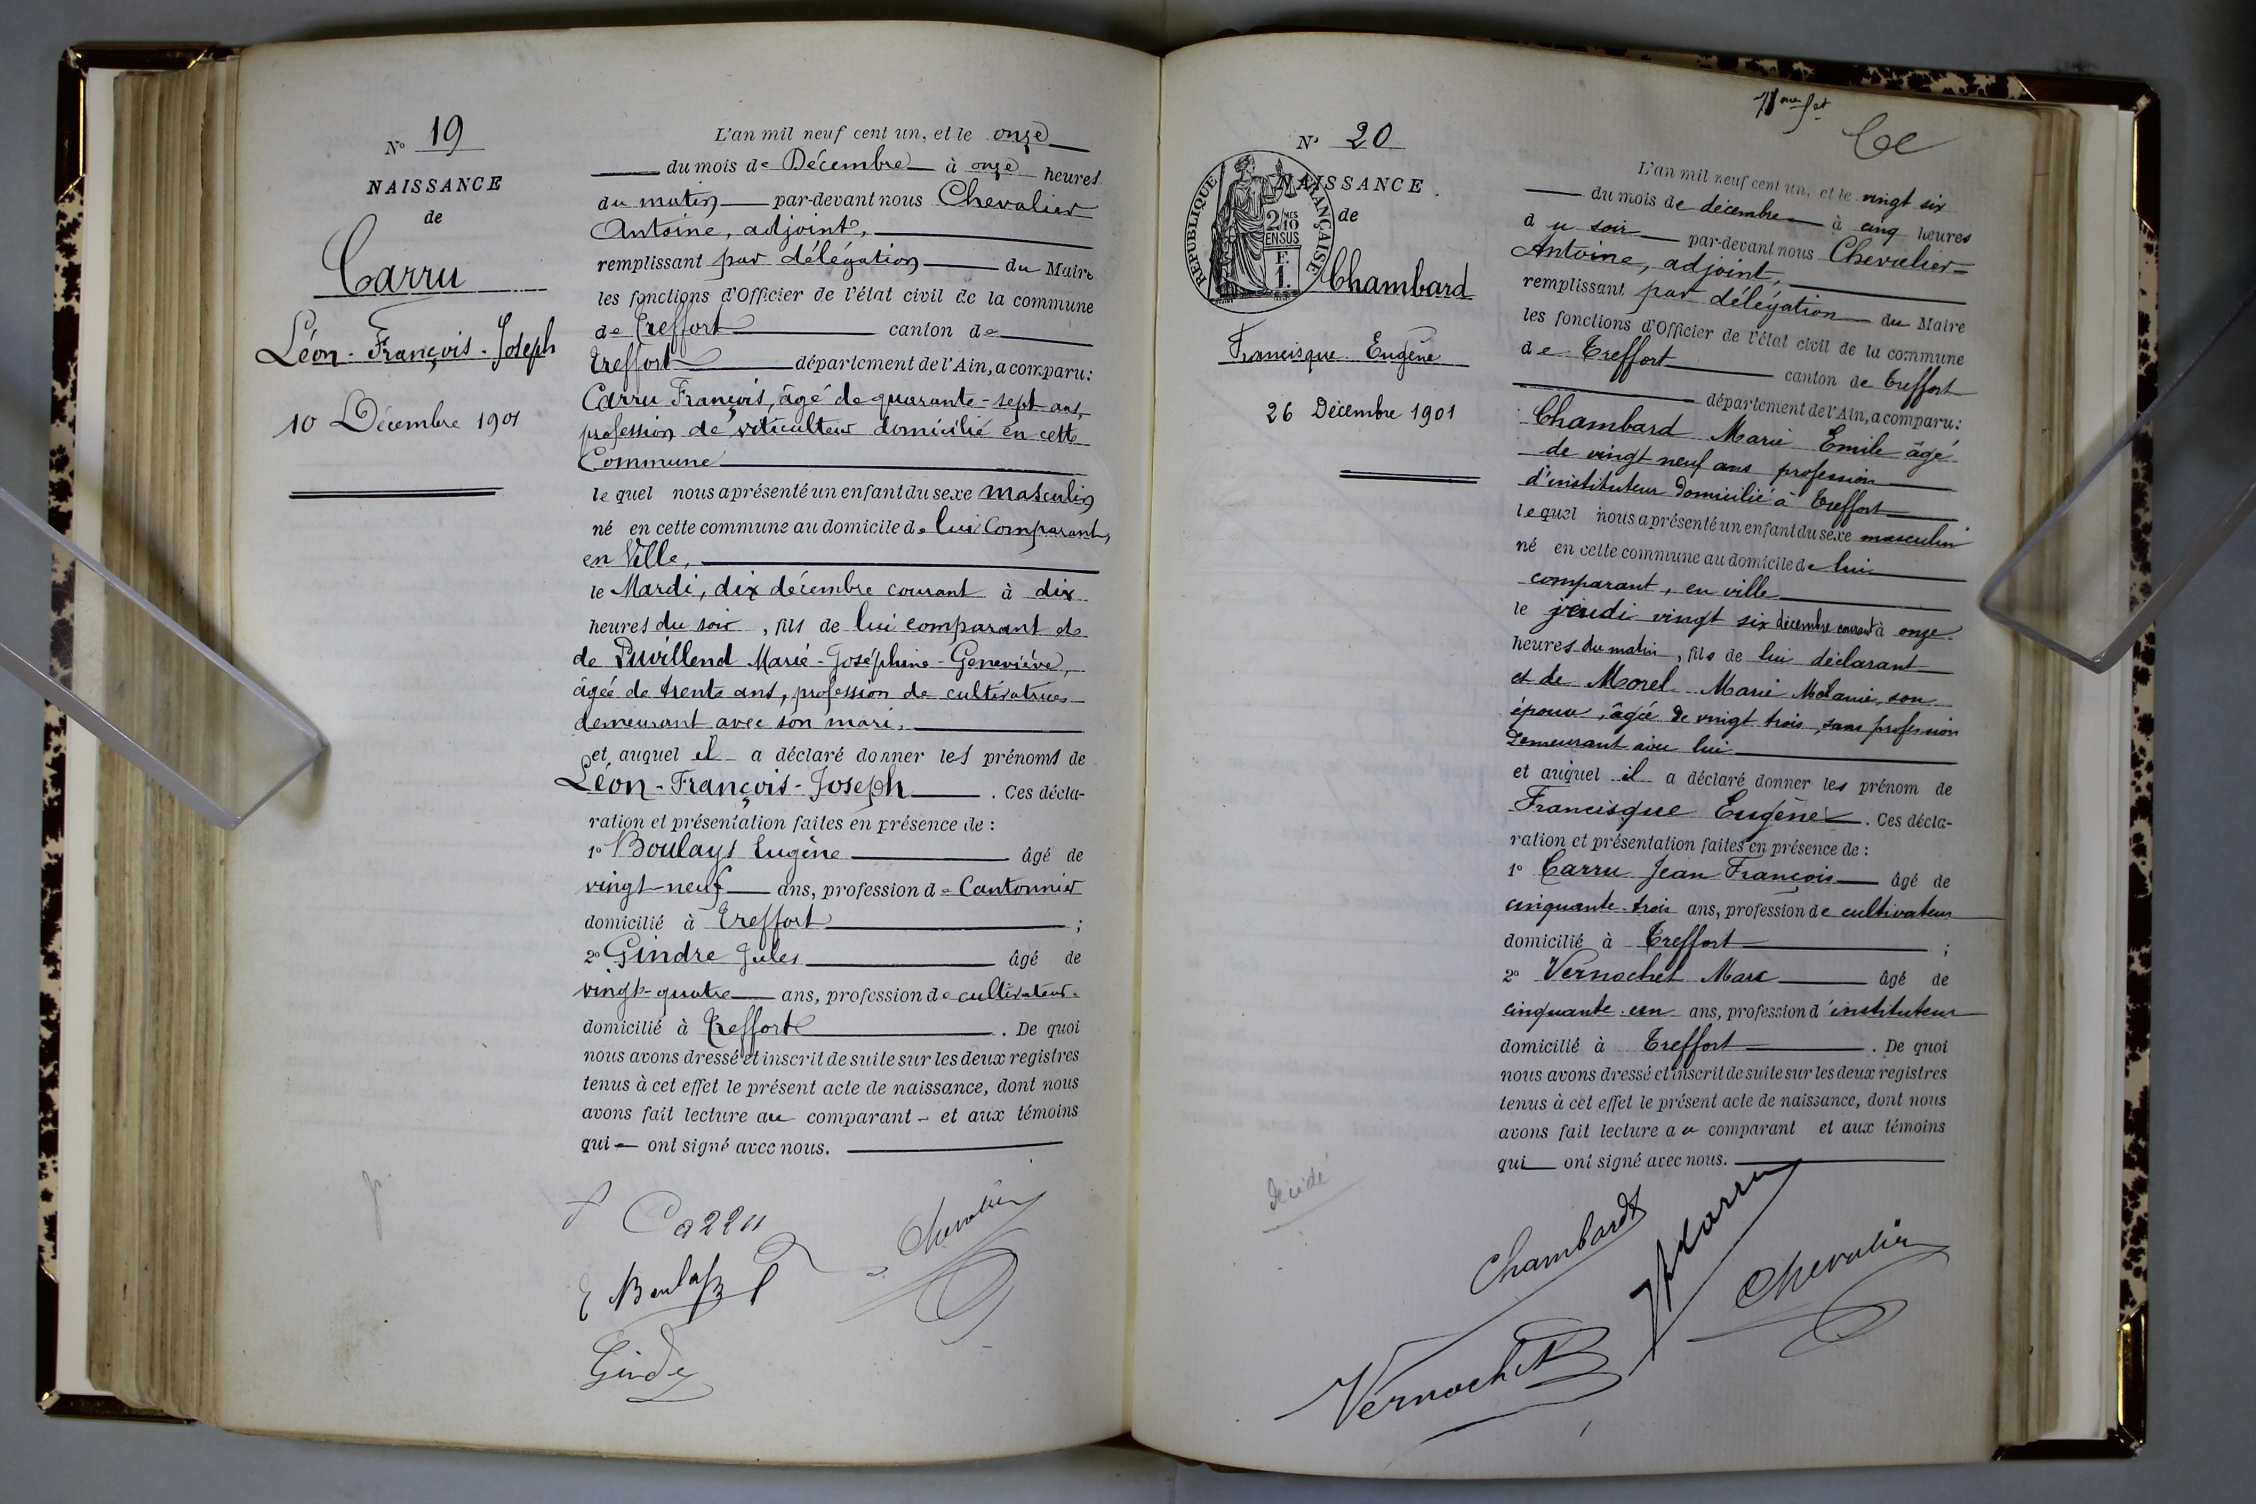 Nº 19
NAISSANCE
de
Carru
Léon-François-Joseph
10 Décembre 1901
L'an mil neuf cent un, et le onze
du mois de Décembre à onze heures
du matin par-devant nous Chevalier
Antoine, adjoint,
remplissant par délégation du Maire
les fonctions d'Officier de l'état civil de la commune
de Treffort canton de
Treffort département de l'Ain, a comparu:
Carru François, âgé de quarante-sept ans,
profession de viticulteur domicilié en cette
Commune
lequel nous a présenté un enfant du sexe masculin
né en cette commune au domicile de lui comparant,
en Ville,
le Mardi, dix décembre courant à dix
heures du soir, fils de lui comparant de
de Puvilland Marie-Joséphine-Geneviève,
âgée de trente ans, profession de cultivatrice
demeurant avec son mari,
et auquel il a déclaré donner les prénoms de
Léon-François-Joseph. Ces décla-
ration et présentation faites en présence de:
1º Boulays Eugène âgé de
vingt-neuf ans, profession de Cantonnier
domicilié à Treffort;
2º Gindre Jules âgé de
vingt-quatre ans, profession de cultivateur
domicilié à Treffort. De quoi
nous avons dressé et inscrit de suite sur les deux registres
tenus à cet effet le présent acte de naissance, dont nous
avons fait lecture au comparant et aux témoins
qui ont signé avec nous.
Carru
Chevalier
E Boulays
Gindre
Nº 20
NAISSANCE
de
RÉPUBLIQUE FRANÇAISE
2/10 MES
EN SUS
F.
1.
Chambard
Francisque Eugène
26 Décembre 1901
décédé
L'an mil neuf cent un, et le vingt six
du mois de décembre à cinq heures
du soir par-devant nous Chevalier
Antoine, adjoint,
remplissant par délégation du Maire
les fonctions d'Officier de l'état civil de la commune
de Treffort canton de Treffort
département de l'Ain, a comparu:
Chambard Marie Emile âgé
de vingt neuf ans profession
d'instituteur domicilié à Treffort
lequel nous a présenté un enfant du sexe masculin
né en cette commune au domicile de lui
comparant, en ville
le jeudi vingt six décembre courant à onze
heures du matin, fils de lui déclarant
et de Morel Marie Mélanie, son
épouse, âgée de vingt trois, sans profession
demeurant avec lui
et auquel il a déclaré donner les prénom de
Francisque Eugène. Ces décla-
ration et présentation faites en présence de:
1º Carru Jean François âgé de
cinquante-trois ans, profession de cultivateur
domicilié à Treffort;
2º Vernochet Marc âgé de
cinquante un ans, profession d'instituteur
domicilié à Treffort. De quoi
nous avons dressé et inscrit de suite sur les deux registres
tenus à cet effet le présent acte de naissance, dont nous
avons fait lecture au comparant et aux témoins
qui ont signé avec nous.
Chambard
Carru
Chevalier
Vernochet